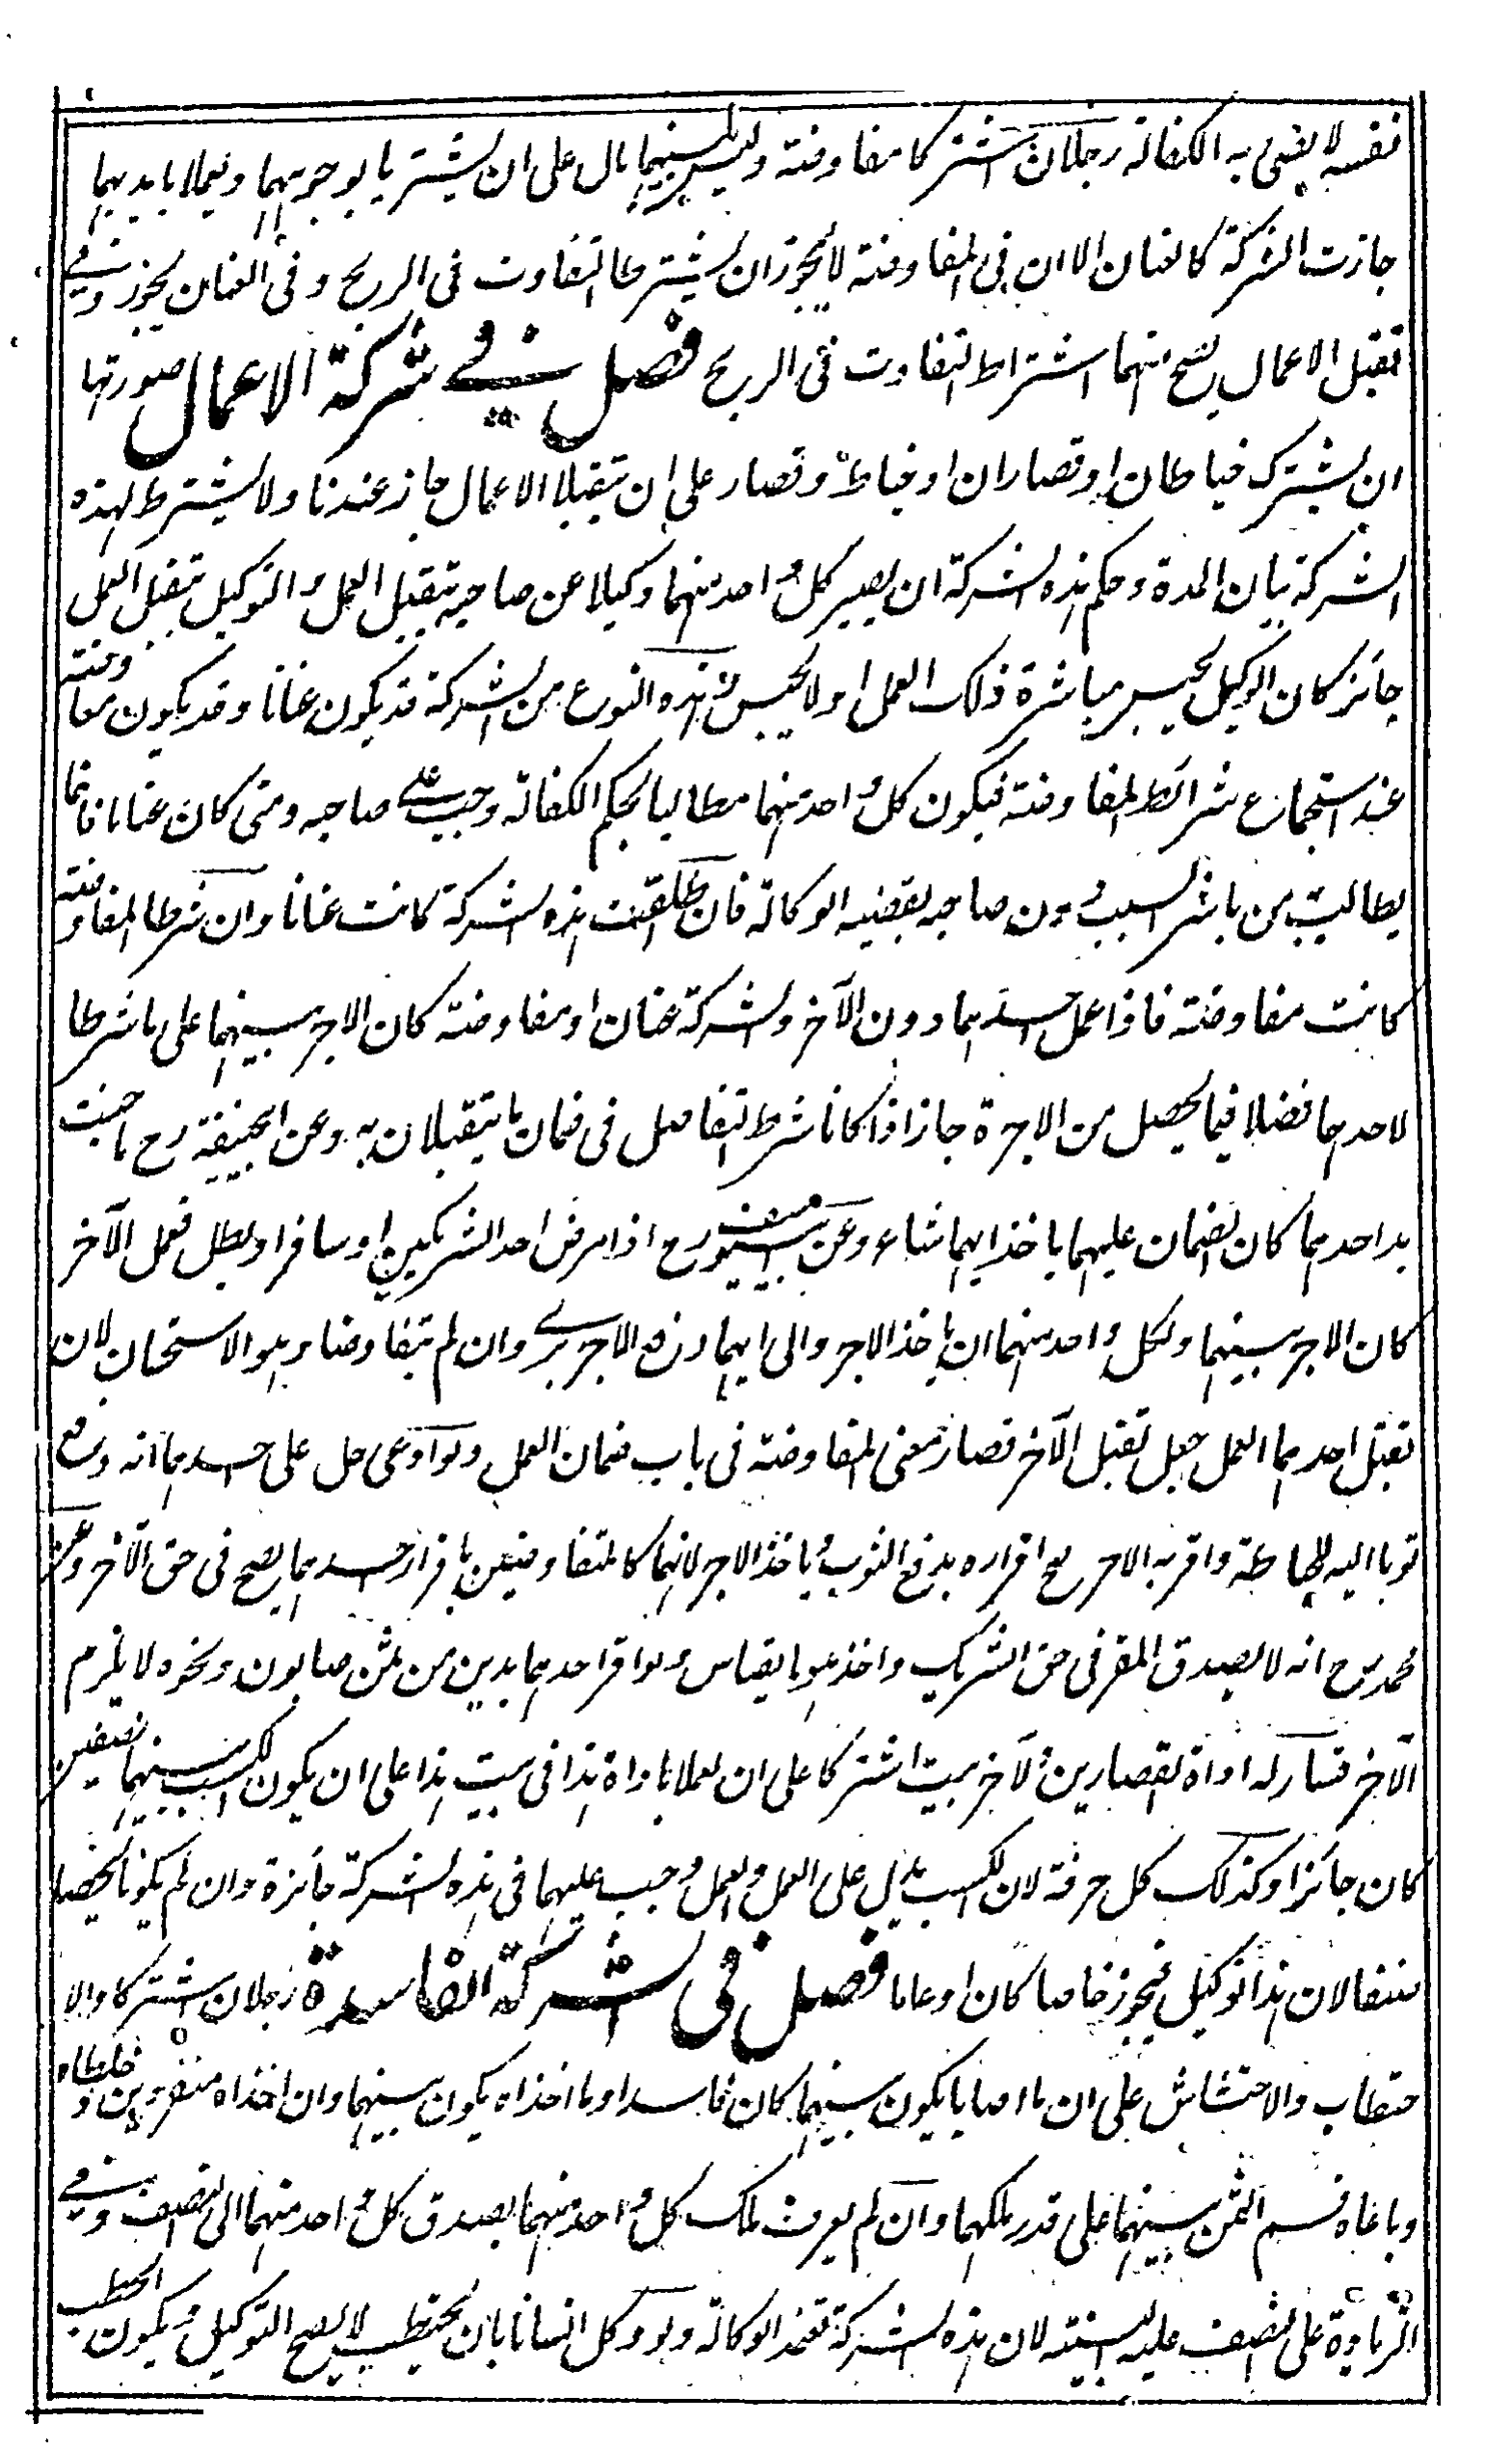 نفسه لا يفتى به الكفالة رجلان اشتركا مفاوضة وليس بينهما مال على ان يشتريا بوجوههما ويعملا بايديهما
جازت الشركة كالعنان الا ان في المفاوضة لا يجوز ان يشترطا التفاوت فى الربح وفى العنان يجوز وفي
تقبل الاعمال يصح منهما اشتراط التفاوت فى الربح فصل في شركة الاعمال صورتها
ان يشترك خياطان او قصاران او خياط وقصار على ان يتقبلا الاعمال جاز عندنا ولا يشترط لهذه
الشركة بيان المدة وحكم هذه الشركة ان يصير كل واحد منهما وكيلا عن صاحبه بتقبل العمل والتوكيل بتقبل العمل
جائز كان الوكيل يحسن مباشرة ذلك العمل او لا يحسن وهذه النوع من الشركة قد يكون عنانا وقد يكون مفاوضة
عند استجماع شرائط المفاوضة فيكون كل واحد منهما مطالبا بحكم الكفالة وجب على صاحبه ومتى كان عنانا فانما
يطالب من باشر السبب دون صاحبه بقضية الوكالة فان طلقت هذه الشركة كانت عنانا وان شرطا المفاوضة
كانت مفاوضة فاذا عمل احدهما دون الآخر والشركة عنان او مفاوضة كان الاجر بينهما على ما شرطا
لاحدهما فضلا فيما يحصل من الاجرة جاز اذا كانا شرط التفاضل فى ضمان ما يتقبلان به وعن ابيحنيفة رح ما جنت
يد احدهما كان الضمان عليهما ياخذ ايهما شاء وعن ابييوسف رح اذا مرض احد الشريكين او سافر او بطل فعمل الآخر
كان الاجر بينهما ولكل واحد منهما ان ياخذ الاجر والى ايهما دفع الاجر برئ وان لم يتفاوضا وهو الاستحسان لان
تقبل احدهما العمل جعل تقبل الآخر فصار معنى المفاوضة فى باب ضمان العمل ولو ادعى رجل على احدهما انه دفع
ثوبا اليه للخياطة واقر به الاخر صح اقراره بدفع الثوب وياخذ الاجر لانهما كالمتفاوضين باقرار احدهما يصح فى حق الآخر وعن
محمد رح انه لا يصدق المقر فى حق الشريك واخذ هو بالقياس ولو اقر احدهما بدين من ثمن صابون ونحوه لا يلزم
الآخر قصار له اداة القصارين والآخر بيت اشتركا على ان يعملا باداة هذا فى بيت هذا على ان يكون الكسب بينهما نصفين
كان جائزا وكذلك كل حرفة لان الكسب بدل على العمل والعمل وجب عليهما فى هذه الشركة جائزة وان لم يكونا يحصلا
سنفا لان هذا توكيل فيجوز خاصا كان او عاما فصل فى الشركة الفاسدة رجلان اشتركا والا
حتطاب والاحتشاش على ان ما اصابا يكون بينهما كان فاسدا وما اخذاه يكون بينهما وان اخذاه منفردين وخلطاه
وباعاه قسم الثمن بينهما على قدر ملكهما وان لم يعرف ملك كل واحد منهما يصدق كل واحد منهما الى النصف وفي
الزيادة على النصف عليه البينة لان هذه الشركة تعتمد الوكالة ولو وكل انسانا بان يحتطب لا يصح التوكيل ويكون الحطب